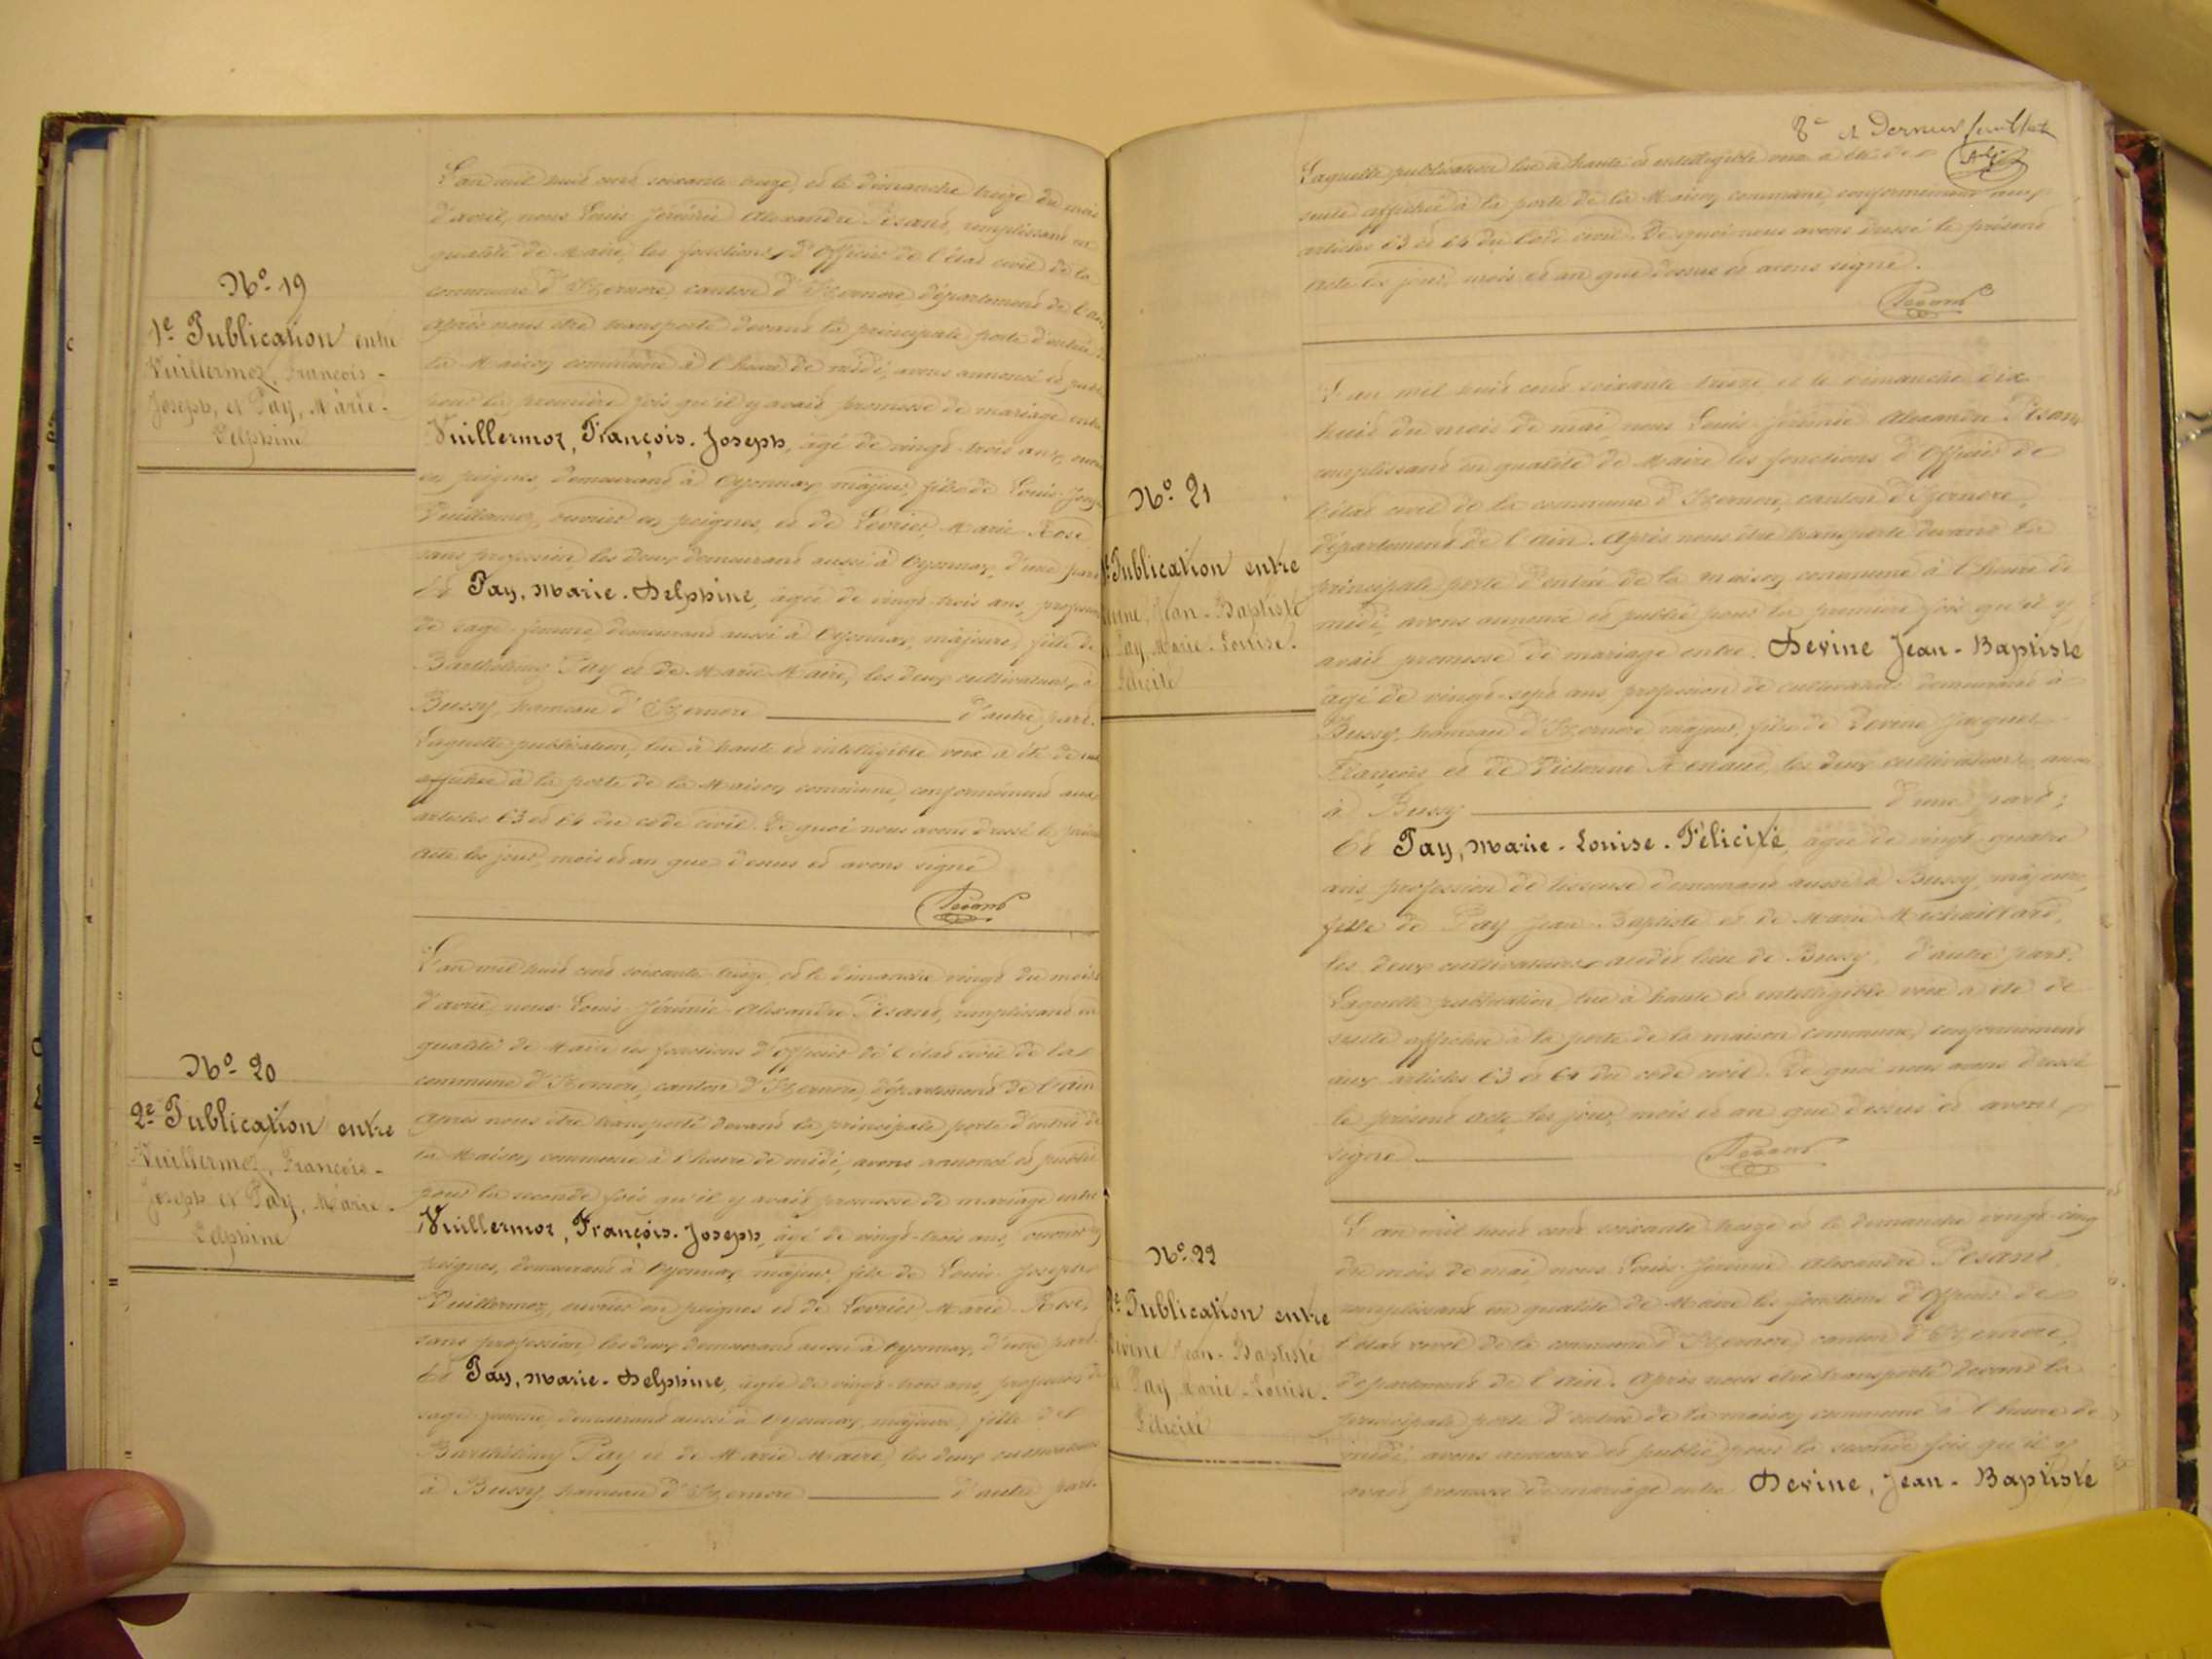 L'an mil huit cent soixante treize, et le dimanche treize du mois
d'avril, nous Louis Jérémie Alexandre Pesant, remplissant en
qualité de Maire, les fonctions d'Officier de l'état civil de la
commune d'Izernore, canton d'Izernore, département de l'ain
Après nous être transporté devant la principale porte d'entrée de
la Maison commune à l'heure de midi, avons annoncé et publié
pour la première fois qu'il y avait promesse de mariage entre
Nº 19
1e Publication entre
Vuillermoz, François-
Joseph, et Pay, Marie-
Delphine
Vuillermoz, François-Joseph, âgé de vingt-trois ans, ouvrier
en peignes, demeurant à Oyonnax, majeur, fils de Louis-Joseph
Vuillermoz, ouvrier en peignes, et de Levrier, Marie-Rose
sans profession, les deux demeurant aussi à Oyonnax, d'une part
Et Pay, Marie-Delphine, âgée de vingt-trois ans, profession
de sage-femme demeurant aussi à Oyonnax, majeure, fille de
Barthélemy Pay et de Marie Maire, les deux cultivateurs, à
Bussy, hameau d'Izernore d'autre part.
Laquelle publication, lue à haute et intelligible voix a été de suite
affichée à la porte de la Maison commune, conformément aux
articles 63 et 64 du code civil. De quoi nous avons dressé le présent
acte les jour, mois et an que dessus et avons signé
Pesant
L'an mil huit cent soixante treize, et le dimanche vingt du mois
d'avril, nous Louis Jérémie Alexandre Pesant, remplissant en
qualité de Maire les fonctions d'officier de l'état civil de la
commune d'Izernore, canton d'Izernore, département de l'ain
Après nous être transporté devant la principale porte d'entrée de
la Maison commune à l'heure de midi, avons annoncé et publié
pour la seconde fois qu'il y avait promesse de mariage entre
Nº 20
2e Publication entre
Vuillermoz, François-
Joseph et Pay, Marie-
Delphine
Vuillermoz, François-Joseph, âgé de vingt-trois ans, ouvrier en
peignes, demeurant à Oyonnax, majeur, fils de Louis-Joseph
Vuillermoz, ouvrier en peignes et de Levrier, Marie-Rose,
sans profession, les deux demeurant aussi à Oyonnax, d'une part
Et Pay, Marie-Delphine, âgée de vingt-trois ans, profession de
sage-femme, demeurant aussi à Oyonnax, majeure, fille de
Barthélemy Pay et de Marie Maire, les deux cultivateurs
à Bussy, hameau d'Izernore d'autre part.
8e et Dernier feuillet
Laquelle publication lue à haute et intelligible voix a été de
suite affichée à la porte de la Maison commune, conformément aux
articles 63 et 64 du Code civil. De quoi nous avons dressé le présent
acte les jour, mois et an que dessus et avons signé.
Pesant
L'an mil huit cent soixante treize et le dimanche dix
huit du mois de mai, nous Louis Jérémie Alexandre Pesant
remplissant en qualité de Maire les fonctions d'Officier de
l'état civil de la commune d'Izernore, canton d'Izernore,
département de l'ain. Après nous être transporté devant la
principale porte d'entrée de la maison commune à l'heure de
midi, avons annoncé et publié pour la première fois qu'il y
avait promesse de mariage entre Devine Jean-Baptiste
Nº 21
Publication entre
Jean-Baptiste
Pay, Marie-Louise-
Félicité
âgé de vingt-sept ans, profession de cultivateur demeurant à
Bussy, hameau d'Izernore majeur, fils de Devine Jacques
François et de Victorine Renaud, les deux cultivateurs aussi
à Bussy d'une part;
Et Pay, Marie-Louise-Félicité, âgée de vingt-quatre
ans, profession de tisseuse demeurant aussi à Bussy, majeure,
fille de Pay Jean-Baptiste et de Marie Michaillard,
les deux cultivateurs audit lieu de Bussy, d'autre part.
Laquelle publication, lue à haute et intelligible voix a été de
suite affichée à la porte de la maison commune, conformément
aux articles 63 et 64 du code civil. De quoi nous avons dressé
le présent acte les jour, mois et an que dessus et avons
signé Pesant
L'an mil huit cent soixante treize et le dimanche vingt-cinq
du mois de mai nous Louis Jérémie Alexandre Pesant
remplissant en qualité de Maire les fonctions d'Officier de
l'état civil de la commune d'Izernore, canton d'Izernore,
département de l'ain. Après nous être transporté devant la
principale porte d'entrée de la maison commune à l'heure de
midi, avons annoncé et publié pour la seconde fois qu'il y
avait promesse de mariage entre Devine, Jean-Baptiste
Nº 22
2e Publication entre
Jean-Baptiste
Pay Marie-Louise-
Félicité